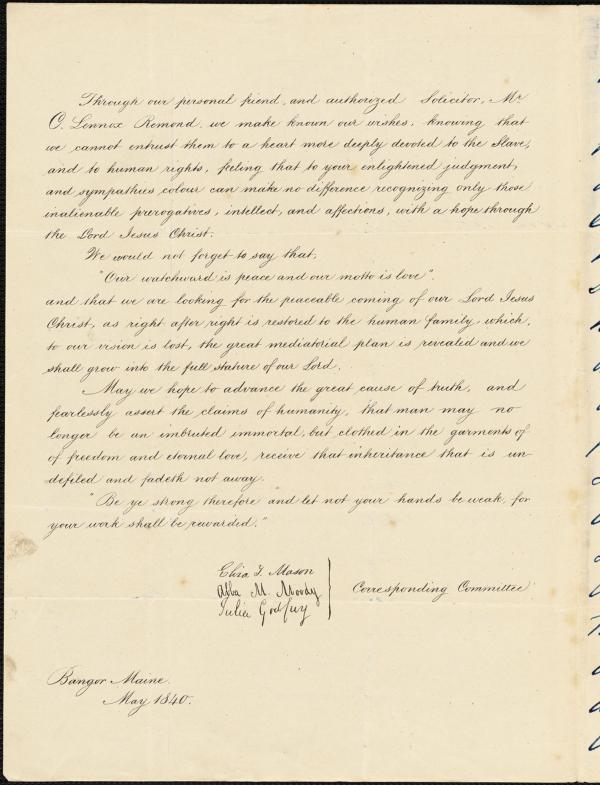 Through our personal friend, and authorized Solicitor, Mr.
C. Lennox Remond, we make known our wishes, knowing that
we cannot entrust them to a heart more deeply devoted to the Slave,
and to human rights, feeling that to your enlightened judgment,
and sympathies colour can make no difference recognizing only those
inalienable prerogatives, intellect, and affections, with a hope through
the Lord Jesus Christ.
We would not forget to say that,
"Our watchword is peace and our motto is love".
and that we are looking for the peaceable coming of our Lord Jesus
Christ, as right after right is restored to the human family, which,
to our vision is lost, the great mediatorial plan is revealed and we
shall grow into the full stature of our Lord.
May we hope to advance the great cause of truth, and
fearlessly assert the claims of humanity, that man may no
longer be an imbruted immortal, but clothed in the garments of
of freedom and eternal love, receive that inheritance that is un-
defiled and fadeth not away.
"Be ye strong therefore and let not your hands be weak, for
your work shall be rewarded."
Eliza F. Mason
M. Moody
Julia Godfrey
Corresponding Committee
Bangor Maine.
May 1840.